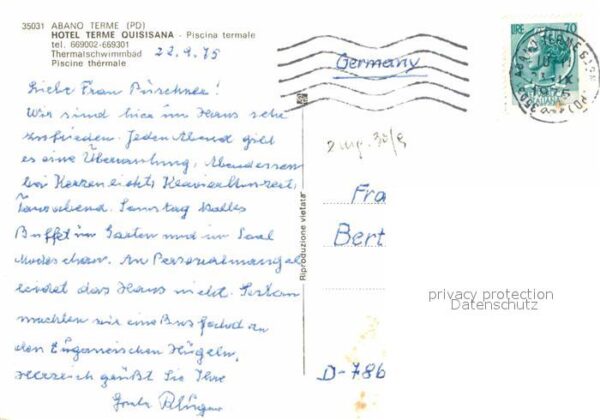 35031 ABANO TERME (PD)
HOTEL TERME QUISISANA - Piscina termale
tel. 669002-669301
Thermalschwimmbad
Piscine thérmale
22.9.75
Germany
LIRE 70
ABANO TERME
IX
1975
Liebe Frau
Wir sind hier im Haus sehr
zufrieden. Jeden Abend gibt
es eine Überraschung, Abendessen
bei Kerzenlicht, Klavierkonzert,
Tanzabend. Samstag kaltes
Buffet im Garten und im Saal
Modeschau. An Personalmangel
leidet das Haus nicht. Gestern
machten wir eine Busfahrt in
den Euganeischen Hügeln.
Herzlich grüßt Sie Ihre
30/9
Fra
Bert
D-786
Riproduzione vietata
privacy protection
Datenschutz